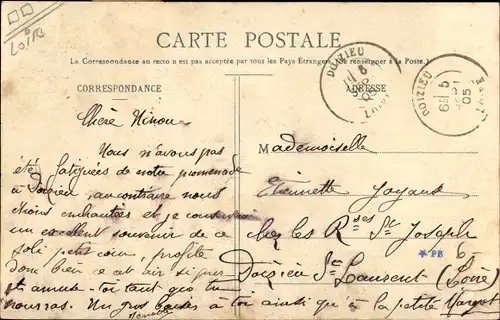 LOIRE
CARTE POSTALE
La Correspondance au recto n'est pas acceptée par tous les Pays Étrangers. (Se renseigner à la Poste.)
CORRESPONDANCE
ADRESSE
DOIZIEU
DOIZIEU
LOIRE
Chère Ninou
Nous n'avons pas
été fatiguées de notre promenade
à Doizieu, au contraire nous
étions enchantées et je conserverai
un excellent souvenir de ce
joli petit coin, profite
donc bien de cet air si pur
et amuse-toi tant que tu
pourras. Un gros baiser à toi ainsi qu'à la petite Margot
Mademoiselle
Etiennette
chez les Rdes St Joseph
Doizieu St Laurent (Loire)
PB
6